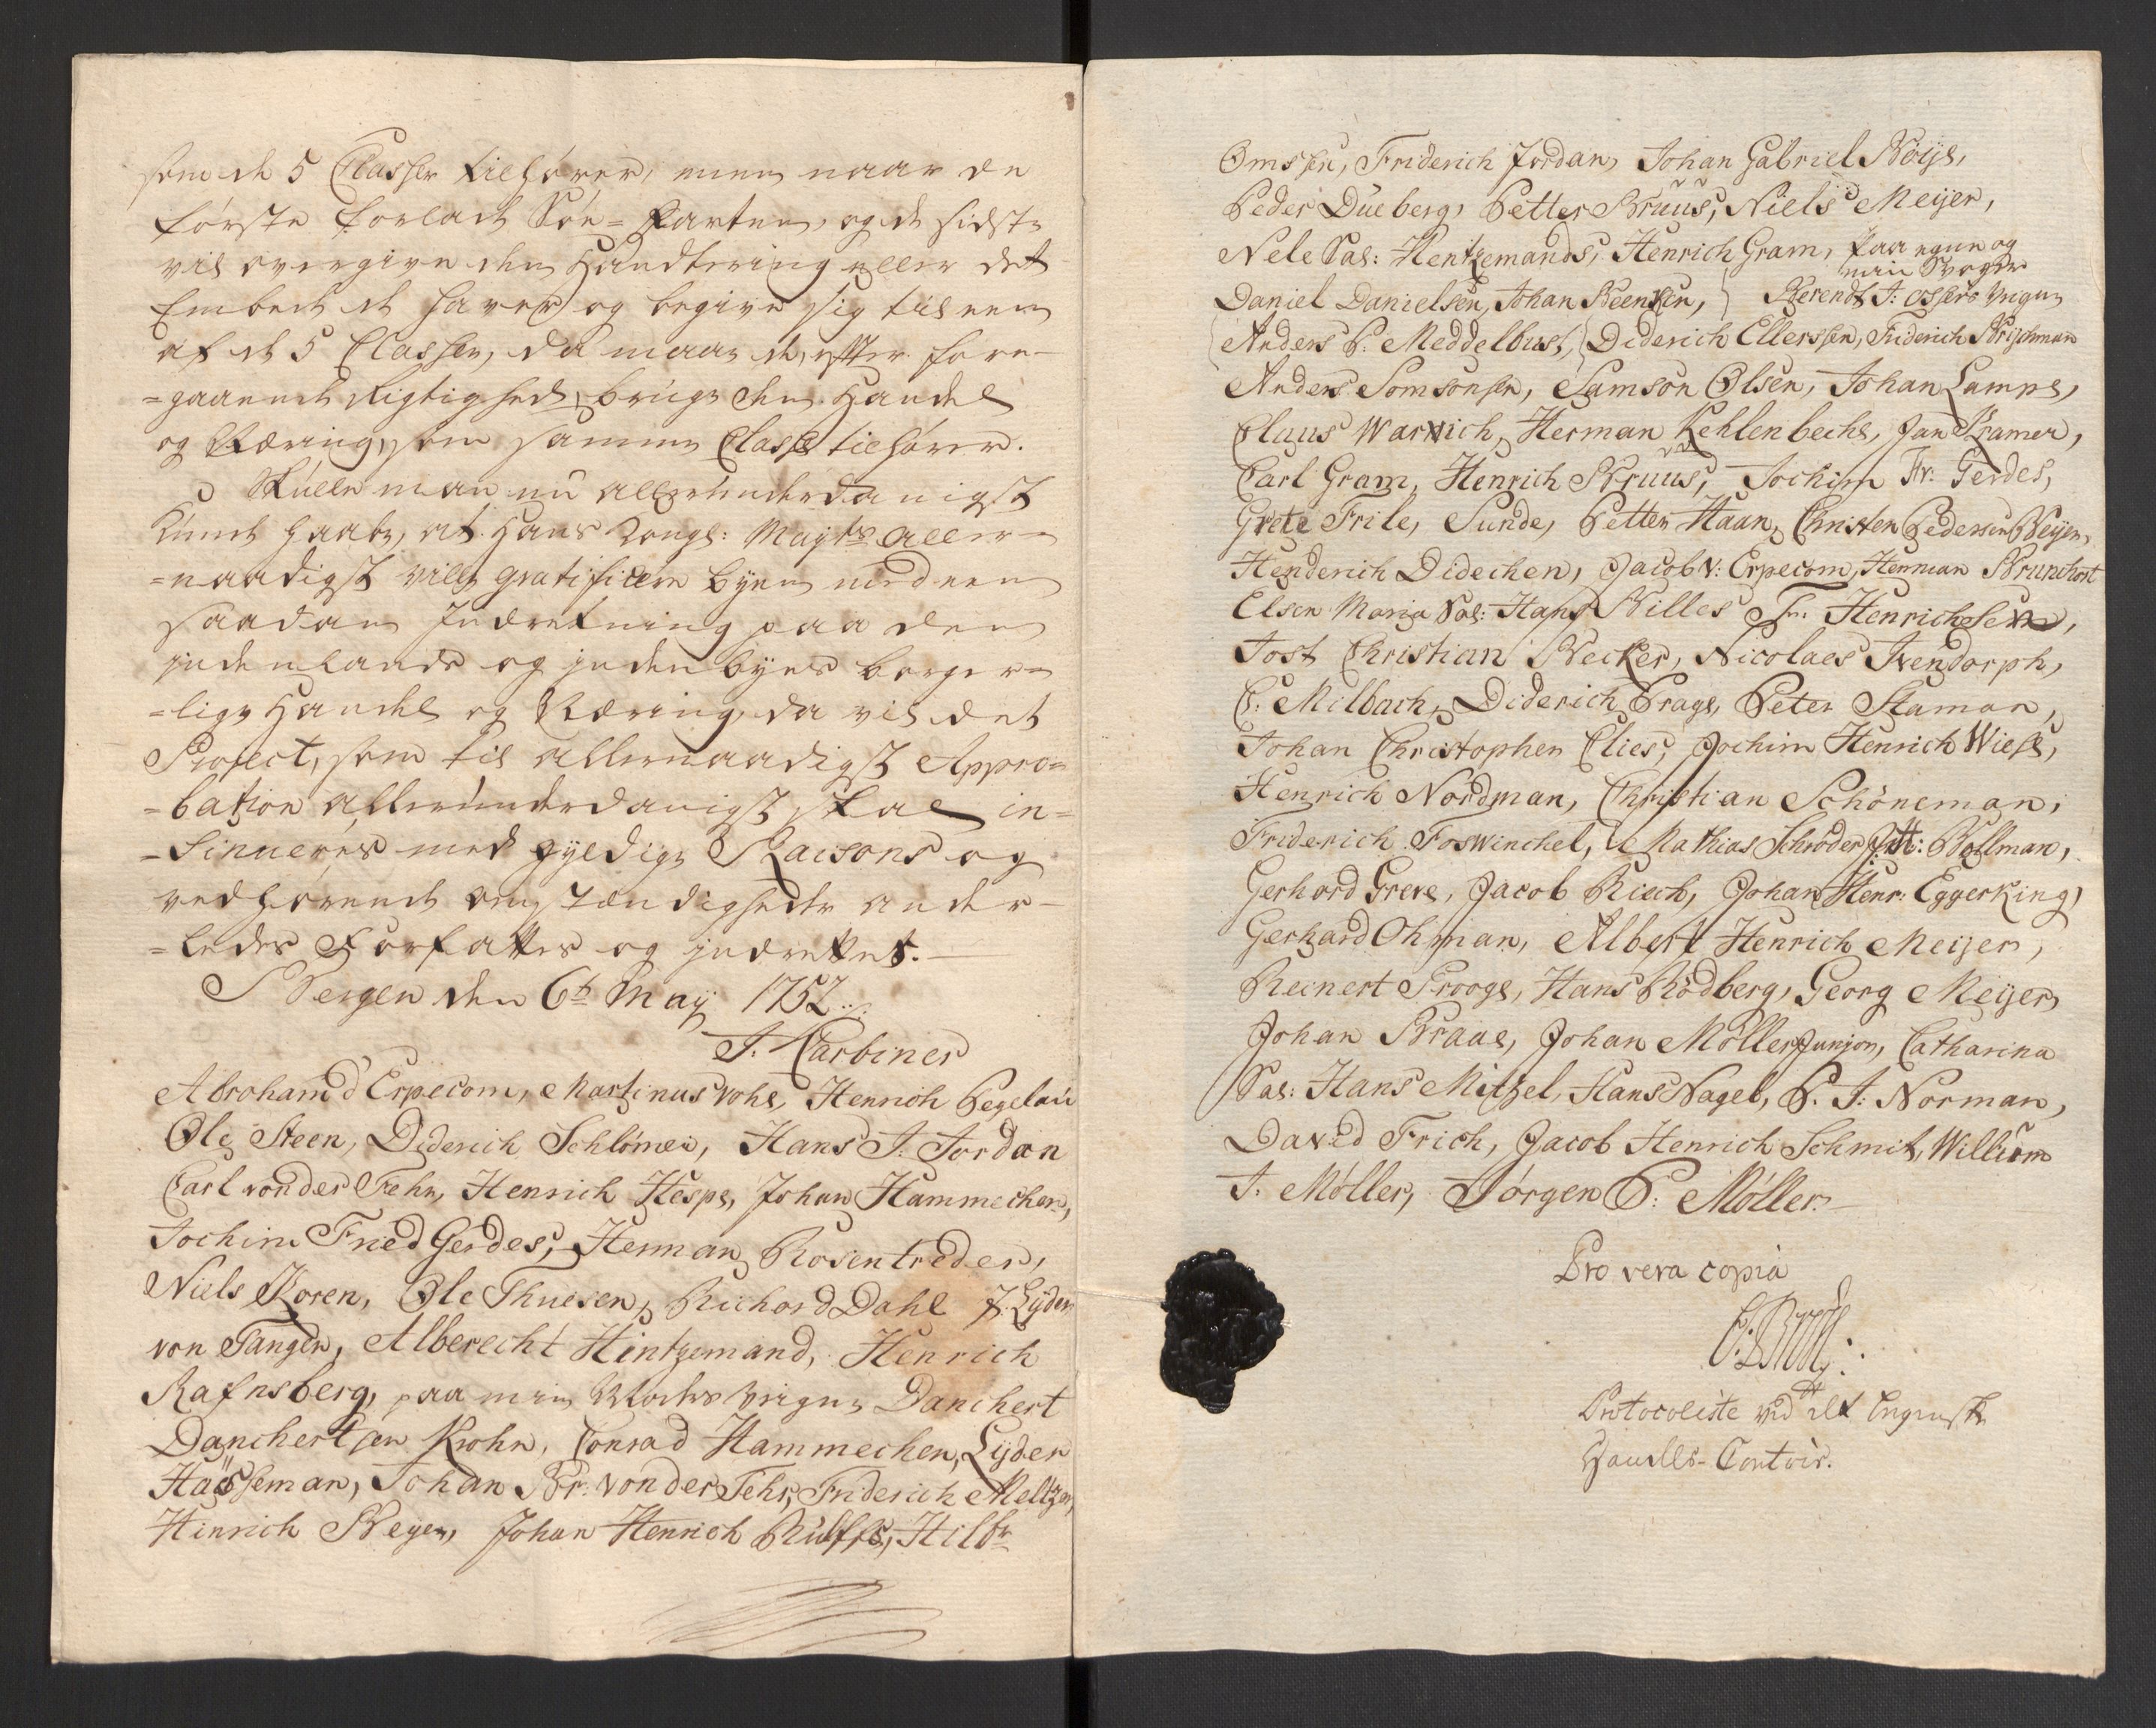 som de 5 Classer tilhører, men naar de
første forlade Søe-Farten, og de sidste
vil overgive den Handtering eller det
Embede de haver og begive sig til een
af de 5 Classer, da maae de, efter fore-
=gaaende Rigtighed, bruge den Handel
og Næring, som samme Classe tilhører.
Skulle man nu allerunderdanigst
kunde haabe, at Hans Kongl: Mayts aller-
=naadigst ville gratificere Byen med een
saadan Indretning paa den
indenlands og inden byes borger-
=lige Handel og Næring, da vil det
Project, som til allernaadigst Appro=
=bation allerunderdanigst skal in=
=sinueres med gyldige Raisons og
vedhørende omstændigheder ander-
=ledes Forfattes og indrettes.
Bergen den 6te May 1752
J. Garbiner
Abraham d Erpecom, Martinus Vohs, Henrich Pegelau
Ole Steen, Diderich Schlömer, Hans J. Jordan
Carl von der Fehr, Henrich Hespe, Johan Hammechen,
Jochim Fried Gerdes, Herman Rosentreder,
Niels Koren, Ole Thuesen, Richard Dahl J. Lyder
von Tangen, Alberecht Hintzemand, Henrich
Rafnsberg, paa min Moders Vegne Danchert
Danchertsen Krohn, Conrad Hammechen, Lyder
Hasseman, Johan Br: von der Fehr, Friderich Meltzer,
Hinrich Beyer, Johan Henrich Rulffs, Hilbr
Omssen, Friderich Jordan, Johan Gabriel Böyse,
Peder Dueberg, Petter Bruus, Niels Meyer,
Nele Sal: Hentzemands, Henrich Gram, paa egne og
min Svoger
Daniel Danielsen, Johan Beenken, Berendt J: Ossers Vegne
Anders P. Meddelbus, Diderich Ellerssen, Friderich Brischman
Anders Somsonsen, Samson Olsen, Johan Lamps,
Claus Warnich, Herman Kehlenbechs, Jan Kramer,
Carl Gram, Henrich Bruus, Jochim Fr: Gerdes,
Grete Frile, Sunde, Petter Haan, Christen Pedersen Beyer,
Henderich Didechen, Jacob V: Erpecom, Herman Brunchost
Elsen Maria Sal: Hans Billes Fr: Henrichsen,
Jost Christian Becker, Nicolaes Ivendorph,
C: Milbach, Diderich Prage, Peter Staman,
Johan Christopher Clies, Jochim Henrich Wiese,
Henrich Nordman, Christian Schöneman,
Friderich Foswinchel, Mathias Schröder J: H: Bollman,
Gerhard Greve, Jacob Riech, Johan Henr: Eggerking,
Gerhard Ohman, Albert Henrich Meyer,
Reinert Prooge, Hans Rödberg, Georg Meyer,
Johan Braae, Johan Möller Junjor, Catharina
Sal: Hans Mitzel, Hans Nagel, P. J: Norman,
David Frich, Jacob Henrich Schmit, William
J. Møller, Jørgen P: Møller
Pro vera copia
Protocoliste ved det Bergenske
Handels-Contoir.